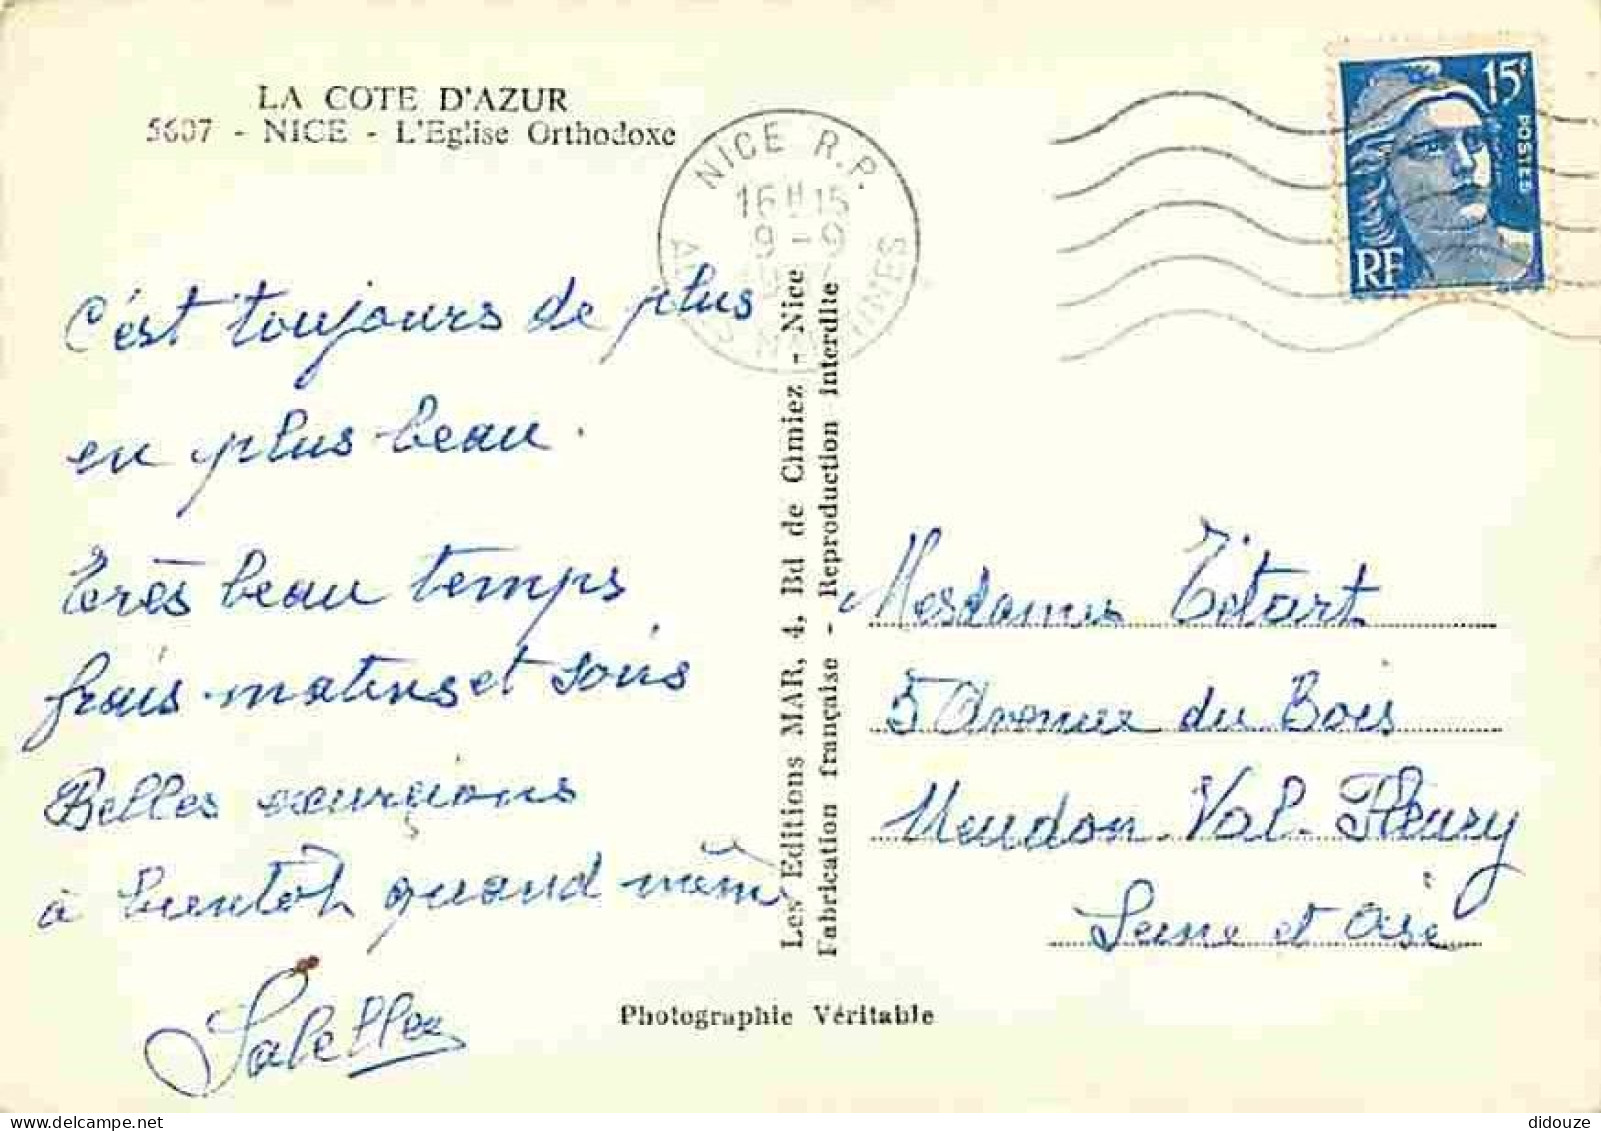 LA COTE D'AZUR
5607 - NICE - L'Eglise Orthodoxe
NICE R.P.
16H15
9-9
15F
POSTES
RF
C'est toujours de plus
en plus beau.
Très beau temps
frais matins et soirs
Belles excursions
à bientôt quand même
Les Editions MAR, 4, Bd de Cimiez - Nice
Fabrication française - Reproduction interdite
Mesdames Titart
5 Avenue du Bois
Meudon Val-Fleury
Seine et Oise
Photographie Véritable
didouze